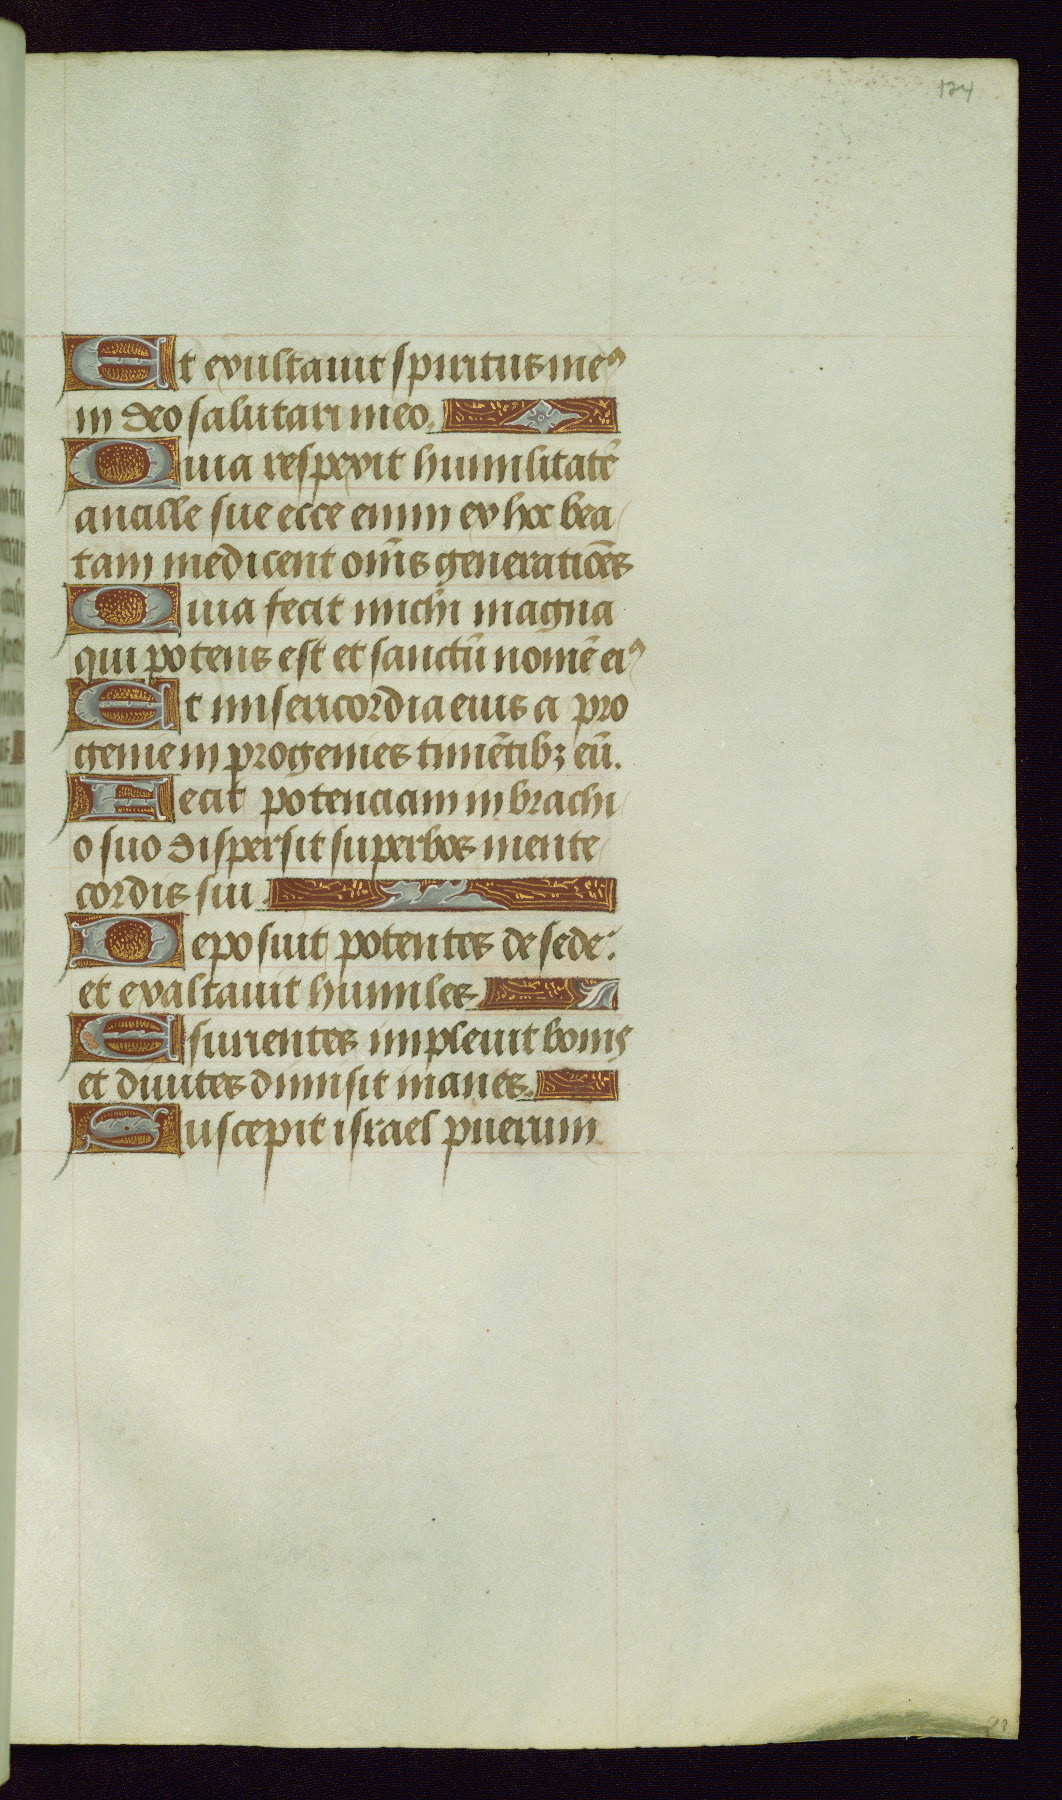 134
Et exultauit spiritus me⁹
in deo salutari meo.
Quia respexit humilitatē
ancille sue ecce enim ex hoc bea
tam me dicent om̄s generatiōes
Quia fecit michi magna
qui potens est et sanctū nomē ei⁹
Et misericordia eius a pro
genie in progenies timētibꝫ eū.
Fecit potenciam in brachi
o suo dispersit superbos mente
cordis sui.
Deposuit potentes de sede:
et exaltauit humiles
Esurientes impleuit bonis
et diuites dimisit inanes.
Suscepit israel puerum